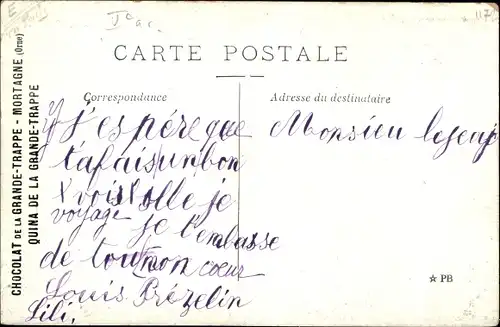 CARTE POSTALE
Correspondance
Adresse du destinataire
CHOCOLAT DE LA GRANDE-TRAPPE - MORTAGNE (Orne)
QUINA DE LA GRANDE-TRAPPE
j'espére que
tafais un bon
voyage
je
je t'embasse
de tout mon coeur
Louis Prézelin
Lili.
Monsieu
☆ PB